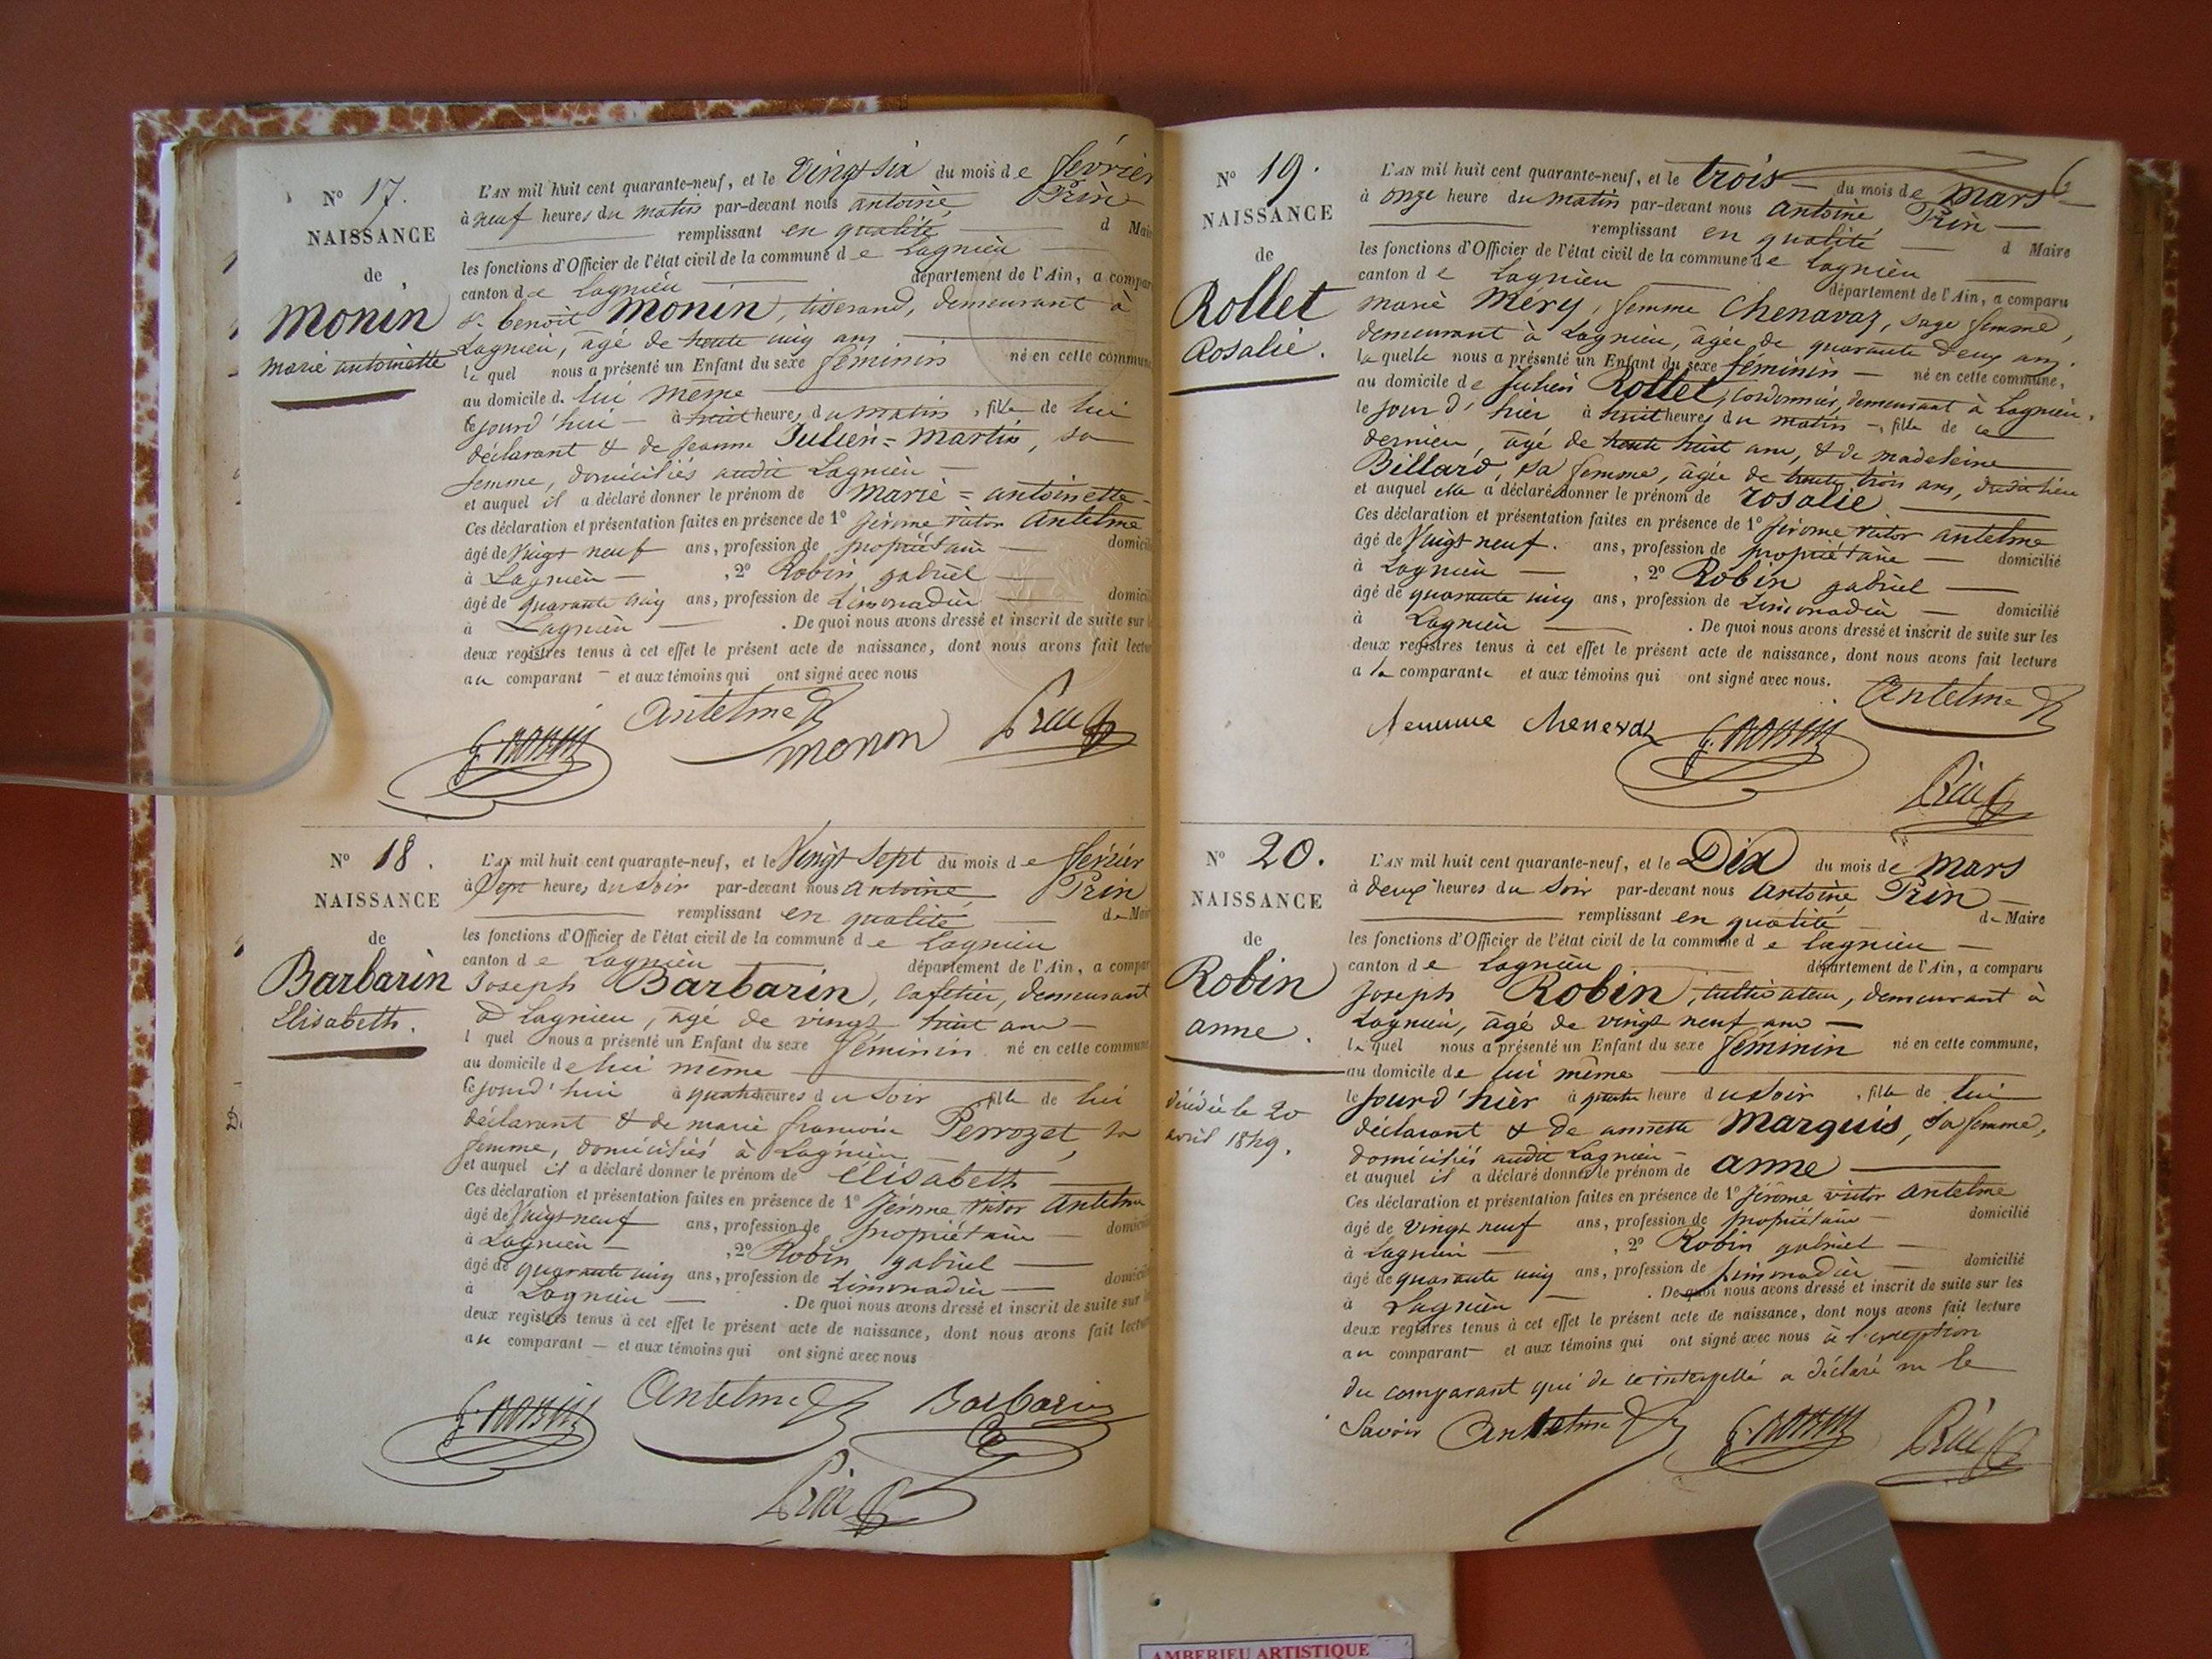 N° 17.
NAISSANCE
de
Monin
marie antoinette
L'AN mil huit cent quarante-neuf, et le vingt six du mois de février
à neuf heures du matin par-devant nous antoine Prin
remplissant en qualité d Mair
les fonctions d'Officier de l'état civil de la commune de Lagnieu
canton de Lagnieu département de l'Ain, a compar
Sr benoit Monin, tisserand, demeurant à
Lagnieu, âgé de trente cinq ans
lequel nous a présenté un Enfant du sexe féminin né en cette commune
au domicile d. lui même
cejourd'hui à huit heures du matin, fille de lui
déclarant & de jeanne Julien=Martin, sa
femme, domiciliés audit Lagnieu
et auquel il a déclaré donner le prénom de marie=antoinette
Ces déclaration et présentation faites en présence de 1° jérome victor antelme
âgé de vingt neuf ans, profession de propriétaire domicili
à Lagnieu, 2° Robin gabriel
âgé de quarante cinq ans, profession de Limonadier domici
à Lagnieu. De quoi nous avons dressé et inscrit de suite sur l
deux registres tenus à cet effet le présent acte de naissance, dont nous avons fait lectu
au comparant et aux témoins qui ont signé avec nous
Antelme
G. Robin monin Prin
N° 18.
NAISSANCE
de
Barbarin
Elisabeth.
L'AN mil huit cent quarante-neuf, et le Vingt Sept du mois de février
à Sept heures du soir par-devant nous antoine Prin
remplissant en qualité de Mair
les fonctions d'Officier de l'état civil de la commune de Lagnieu
canton de Lagnieu département de l'Ain, a compar
Joseph Barbarin, cafetier, demeurant
à Lagnieu, âgé de vingt huit ans
lquel nous a présenté un Enfant du sexe féminin né en cette commune
au domicile de lui même
cejourd'hui à quatre heures du soir fille de lui
déclarant & de marie françoise Perrozet, sa
femme, domiciliés à Lagnieu
et auquel il a déclaré donner le prénom de élisabeth
Ces déclaration et présentation faites en présence de 1° jérome victor Antelme
âgé de vingt neuf ans, profession de propriétaire domicili
à Lagnieu, 2° Robin gabriel
âgé de quarante cinq ans, profession de Limonadier domici
à Lagnieu. De quoi nous avons dressé et inscrit de suite sur
deux registres tenus à cet effet le présent acte de naissance, dont nous avons fait lectu
au comparant et aux témoins qui ont signé avec nous
G. Robin Antelme Barbarin
Prin
N° 19.
NAISSANCE
de
Rollet
Rosalie.
L'AN mil huit cent quarante-neuf, et le trois du mois de mars
à onze heure du matin par-devant nous antoine Prin
remplissant en qualité d Maire
les fonctions d'Officier de l'état civil de la commune de Lagnieu
canton de Lagnieu département de l'Ain, a comparu
marie Mery, femme Chenavaz, sage femme,
demeurant à Lagnieu, âgée de quarante deux ans.
laquelle nous a présenté un Enfant du sexe féminin né en cette commune,
au domicile de Julien Rollet, cordonnier, demeurant à Lagnieu,
le jour d'hier à huit heures du matin, fille de ce
dernier, âgé de trente huit ans, & de madeleine
Billard, sa femme, âgée de trente trois ans, dudit lieu
et auquel elle a déclaré donner le prénom de rosalie
Ces déclaration et présentation faites en présence de 1° jérome victor antelme
âgé de vingt neuf. ans, profession de propriétaire domicilié
à Lagnieu, 2° Robin gabriel
âgé de quarante cinq ans, profession de Limonadier domicilié
à Lagnieu. De quoi nous avons dressé et inscrit de suite sur les
deux registres tenus à cet effet le présent acte de naissance, dont nous avons fait lecture
a la comparante et aux témoins qui ont signé avec nous. Antelme
G. Robin
Prin
N° 20.
NAISSANCE
de
Robin
anne.
décédée le 20
avril 1849.
L'AN mil huit cent quarante-neuf, et le Dix du mois de mars
à deux heures du soir par-devant nous antoine Prin
remplissant en qualité de Maire
les fonctions d'Officier de l'état civil de la commune de Lagnieu
canton de Lagnieu département de l'Ain, a comparu
joseph Robin, cultivateur, demeurant à
Lagnieu, âgé de vingt neuf ans
lequel nous a présenté un Enfant du sexe féminin né en cette commune,
au domicile de lui même
le jourd'hier à quatre heure du soir, fille de lui
déclarant & de annette Marquis, sa femme,
domiciliés audit Lagnieu
et auquel il a déclaré donner le prénom de anne
Ces déclaration et présentation faites en présence de 1° jérôme victor antelme
âgé de vingt neuf ans, profession de propriétaire domicilié
à Lagnieu, 2° Robin gabriel
âgé de quarante cinq ans, profession de Limonadier domicilié
à Lagnieu. De quoi nous avons dressé et inscrit de suite sur les
deux registres tenus à cet effet le présent acte de naissance, dont nous avons fait lecture
au comparant et aux témoins qui ont signé avec nous à l'exception
du comparant qui de ce interpellé a déclaré ne le
savoir Antelme G. Robin Prin
AMBERIEU ARTISTIQUE